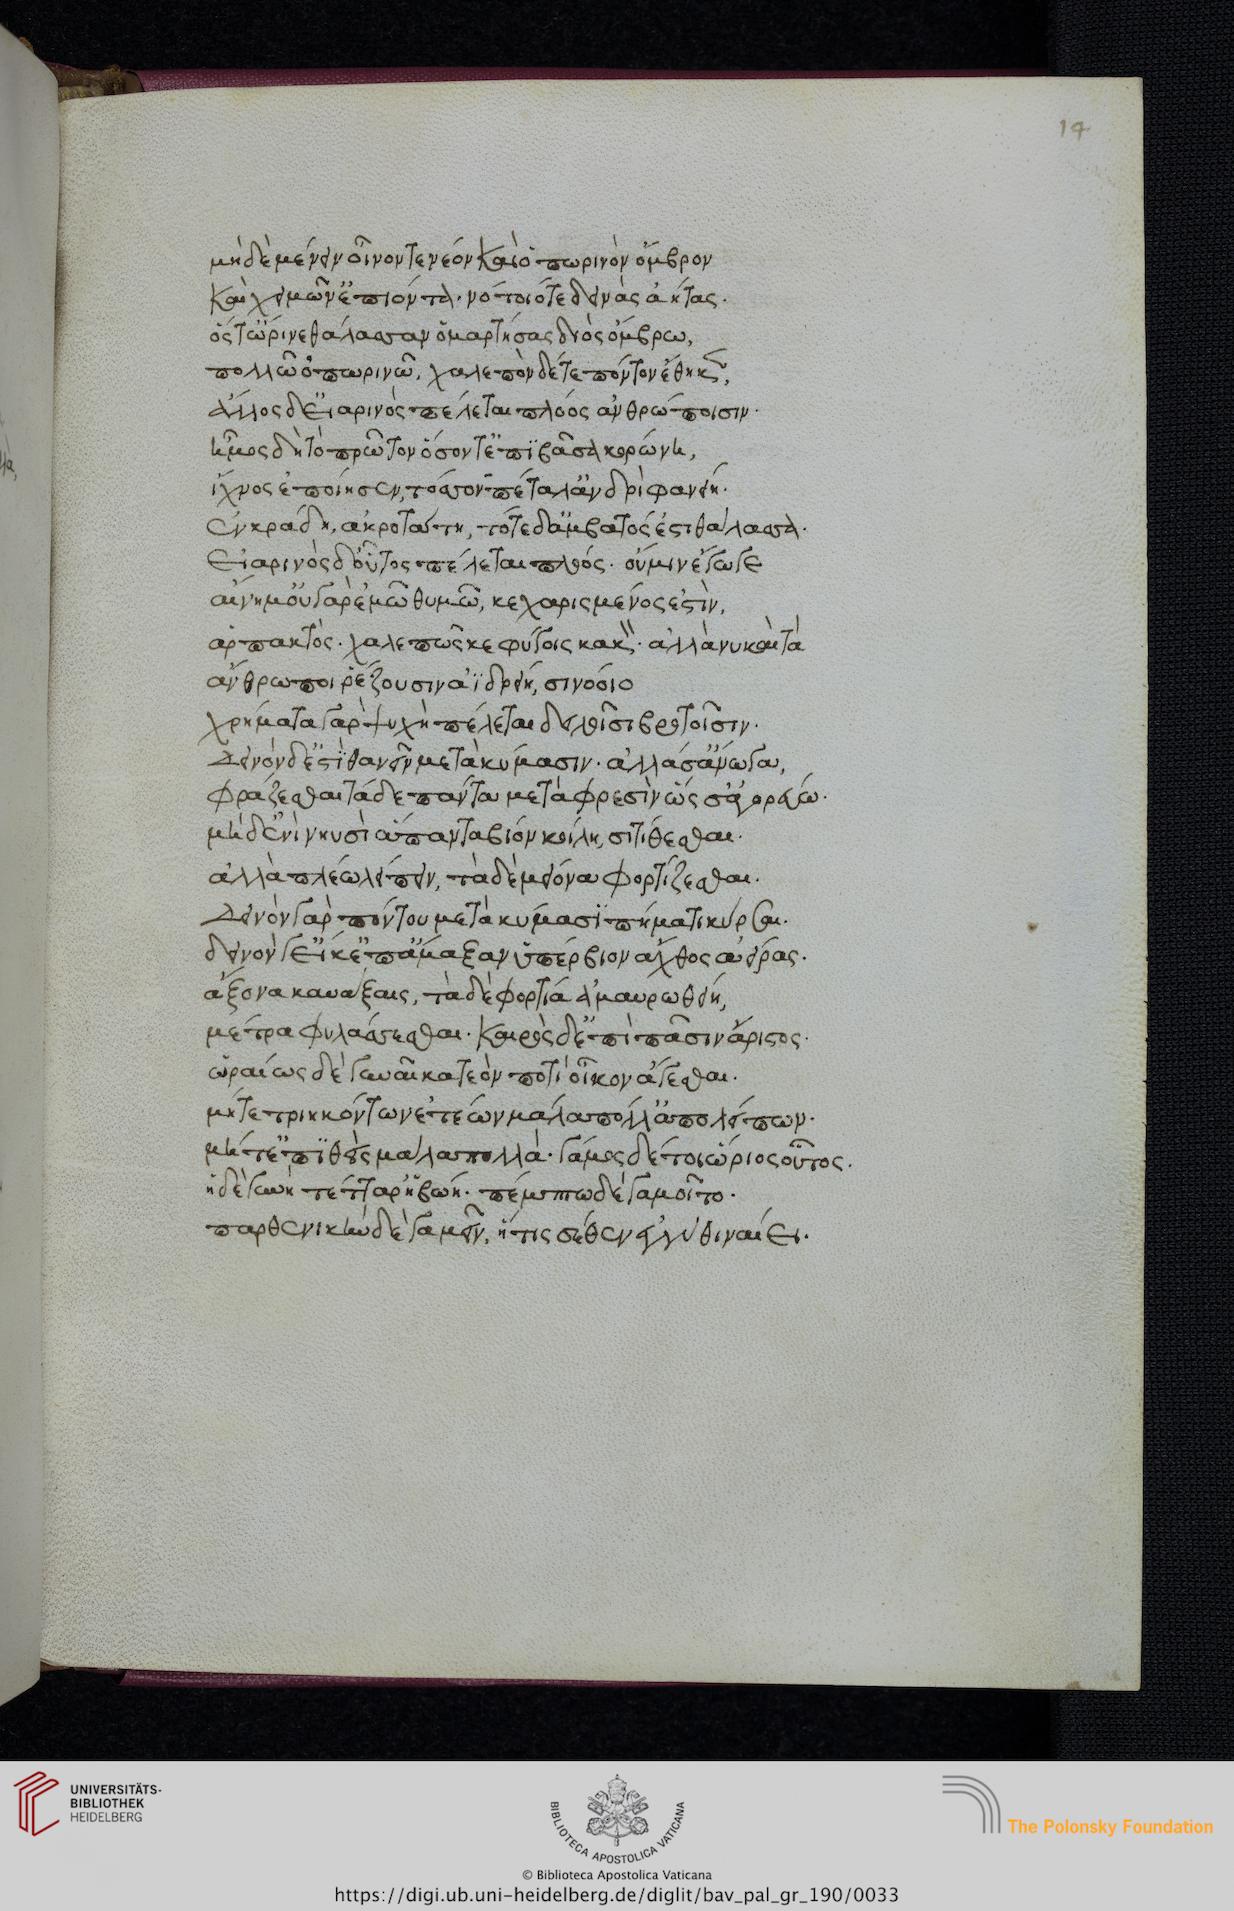 14
μηδὲ μένειν οἶνόν τε νέον καὶ ὀπωρινὸν ὄμβρον
καὶ χειμῶν ἐπιόντα. νότοιό τε δεινὰς ἀήτας.
ὅς τ' ὤρινε θάλασσαν ὁμαρτήσας διὸς ὄμβρω,
πολλῶ ὀπωρινῶ, χαλεπὸν δέ τε πόντον ἔθηκεν,
ἄλλος δ' εἰαρινὸς πέλεται πλόος ἀνθρώποισιν.
ἦμος δὴ τὸ πρῶτον ὅσον τ' ἐπϊβᾶσα κορώνη,
ἴχνος ἐποίησεν, τόσσον πέταλ' ἀνδρὶ φανείη.
ἐν κράδη, ἀκροτάτη, τότε δ' ἄμβατός ἐστι θάλασσα.
εἰαρινὸς δ' οὗτος πέλεται πλόος. οὔ μιν ἔγωγε
αἴνημ' οὐ γὰρ ἐμῶ θυμῶ, κεχαρισμένος ἐστὶν,
ἁρπακτός. χαλεπῶς κε φύγοις κακόν. ἀλλά νυ καὶ τὰ
ἄνθρωποι ῥέζουσιν ἀϊδρείη, σι νόοιο
χρήματα γὰρ ψυχὴ πέλεται δειλοῖσι βροτοῖσιν.
Δεινὸν δ' ἐστὶ θανεῖν μετὰ κύμασιν. ἀλλά σ' ἄνωγα,
φράζεσθαι τάδε πάντα μετὰ φρεσὶν ὥς σ' ἀγορεύω.
μὴ δ' ἐνὶ νηυσὶ ἅπαντα βίον κοίλη, σι τίθεσθαι.
ἀλλὰ πλέω λείπειν, τὰ δὲ μείονα φορτίζεσθαι.
Δεινὸν γὰρ πόντου μετὰ κύμασϊ πήματι κύρσαι.
δεινὸν γ' εἴ κ' ἐπ' ἄμαξαν ὑπέρβιον ἄχθος ἀείρας.
ἄξονα καυάξαις, τὰ δὲ φορτία ἀμαυρωθείη,
μέτρα φυλάσσεσθαι. καιρὸς δ' ἐπὶ πᾶσιν ἄριστος.
ὡραίως δὲ γυναῖκα τεὸν ποτὶ οἶκον ἄγεσθαι.
μήτε τριηκόντων ἐτέων μάλα πόλλ' ἀπολείπων.
μήτ' ἐπϊθεὶς μάλα πολλά. γάμος δέ τοι ὥριος οὗτος.
ἡ δὲ γυνὴ τέτταρ' ἡβώη. πέμπτω δὲ γαμοῖτο.
παρθενικὴν δὲ γαμεῖν, ἥτις σέθεν ἐγγύθι ναίει.
UNIVERSITÄTS-
BIBLIOTHEK
HEIDELBERG
BIBLIOTECA APOSTOLICA VATICANA
The Polonsky Foundation
© Biblioteca Apostolica Vaticana
https://digi.ub.uni-heidelberg.de/diglit/bav_pal_gr_190/0033